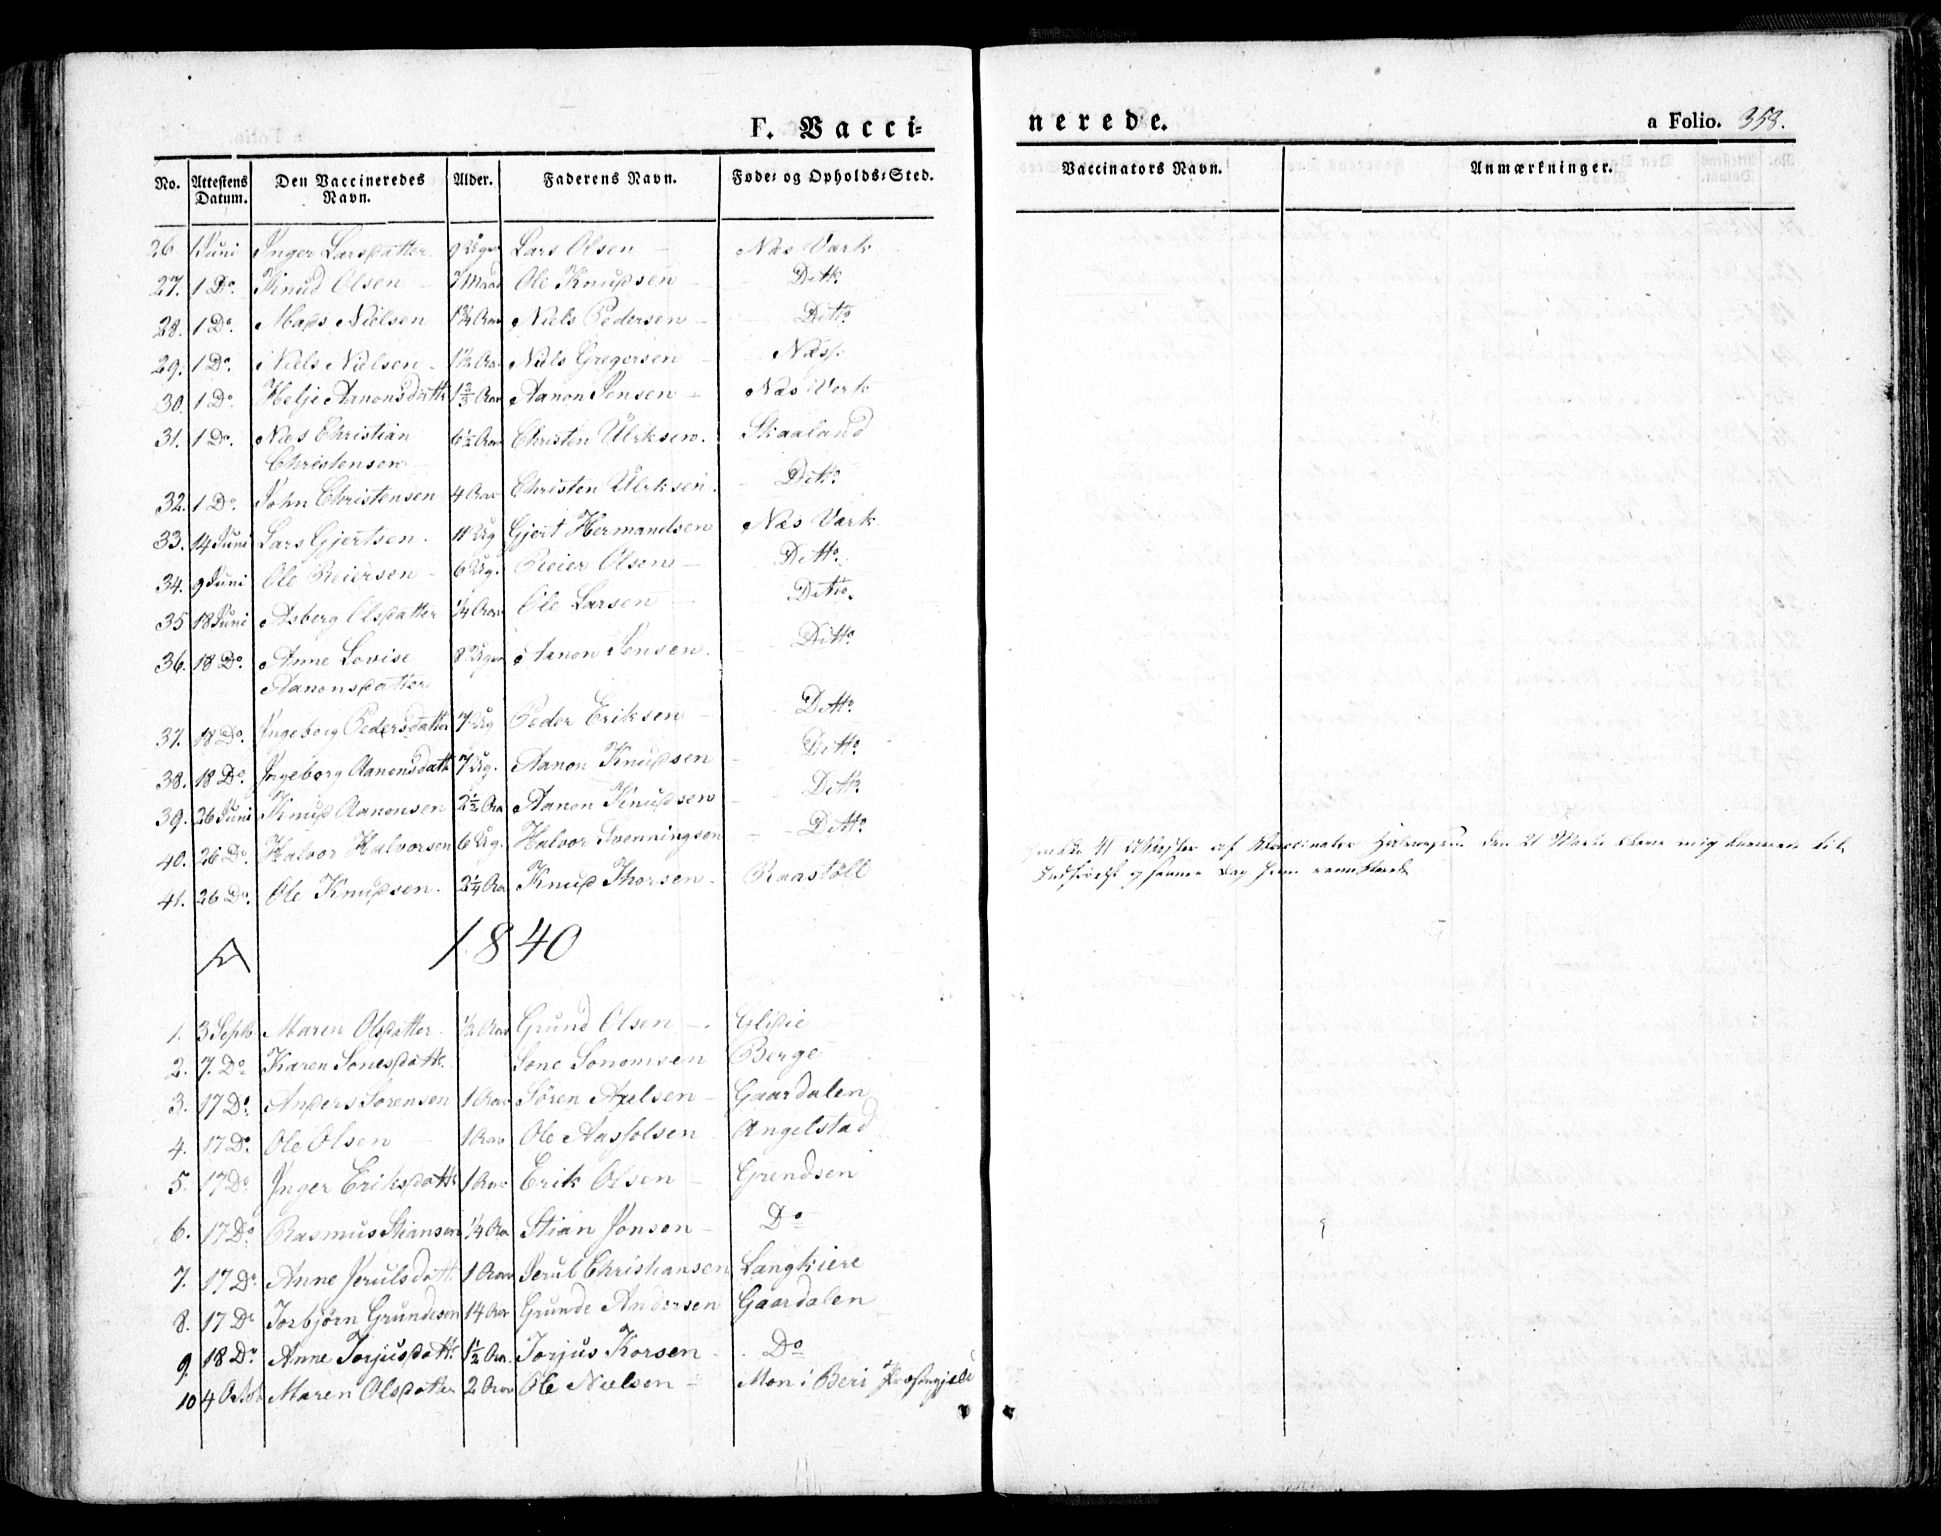 F. Vacci=
nerede.
a Folio. 358.
No. Attestens Datum. Den Vaccineredes Navn. Alder. Faderens Navn. Føde= og Opholds=Sted.
Vaccinators Navn. Anmærkninger.
26 1 Juni Inger Larsdatter 9 Ugr Lars Olsen Næs Værk
27. 1 Do. Knud Olsen Ole Knudsen Ditto
28. 1 Do. Mads Nielsen 1 3/4 Aar Niels Pedersen Ditto
29. 1 Do. Niels Nielsen 1 1/2 Aar Niels Gregersen Næss.
30. 1 Do. Helje Aanonsdattr 1 2/3 Aar Aanon Jensen Næs Verk
31. 1 Do. Niels Christian 6 1/2 Aar Christen Ulrksen. Skaaland
Christensen
32. 1 Do. John Christensen 4 Aar Christen Ulrksen. Ditto
33. 14 Juni Lars Gjertsen. 11 Ug Gjert Hermandsen Næs Værk
34. 9 Juni Ole Reiersen 6 Ug. Reier Olsen Ditto.
35 18 Juni Asberg Olsdatter 1/4 Aar Ole Larsen Ditto.
36. 18 Do. Anne Lovise 8 Uger Aanon Jensen. Ditto.
Aanonsdatter
37. 18 Do. Ingeborg Pedersdatter 7 Ug Peder Eriksen Ditto.
38. 18 Do. Ingeborg Aanonsdattr 7 Ug. Aanon Knudsen Ditto.
39. 26 Juni Knud Aanonsen 2 1/2 Aar Aanon Knudsen Ditto.
40. 26 Do. Halvor Halvorsen 6 Ug. Halvor Svenningsen Ditto.
41. 26 Do. Ole Knudsen. 2 1/4 Aar Knud Thorsen. Raastöll
41 af Vaccinator den 21 mig til
og samme Dag
1840
1. 3 Septb Maren Olsdatter. 1/2 Aar Grund Olsen Glidie
2. 7. Do Karen Sonesdattr. Sone Sonomsen Berge
3. 17 Do. Anders Sörensen 1 Aar Sören Axelsen Gaardalen
4. 17 Do. Ole Olsen 1 Aar Ole Aasfolsen Angelstad
5. 17 Do. Inger Eriksdattr 1 Aar Erik Olsen Grendsen
6. 17 Do Rasmus Stiansen 1/4 Aar Stian Jonsen Do
7. 17 Do. Anne Jerulsdattr. 1 Aar Jerul Christiansen Langkiere
8. 17 Do Torbjörn Grundesen 14 Aar Grunde Andersen Gaardalen
9. 18 Do. Anne Torjusdattr. 1 1/2 Aar. Torjus Korsen Do
10 4 Octob Maren Olsdatter 2 Aar Ole Nielsen Mon i Beri Præstegjeld